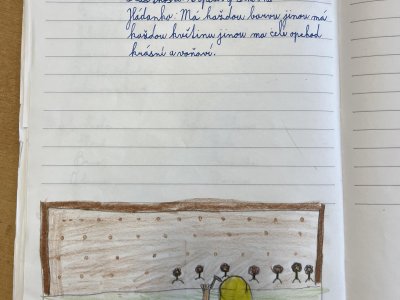 Hádanka: Má každou barvu jinou má
každou květinu jinou ma celé opchod
krásné a voňavé.